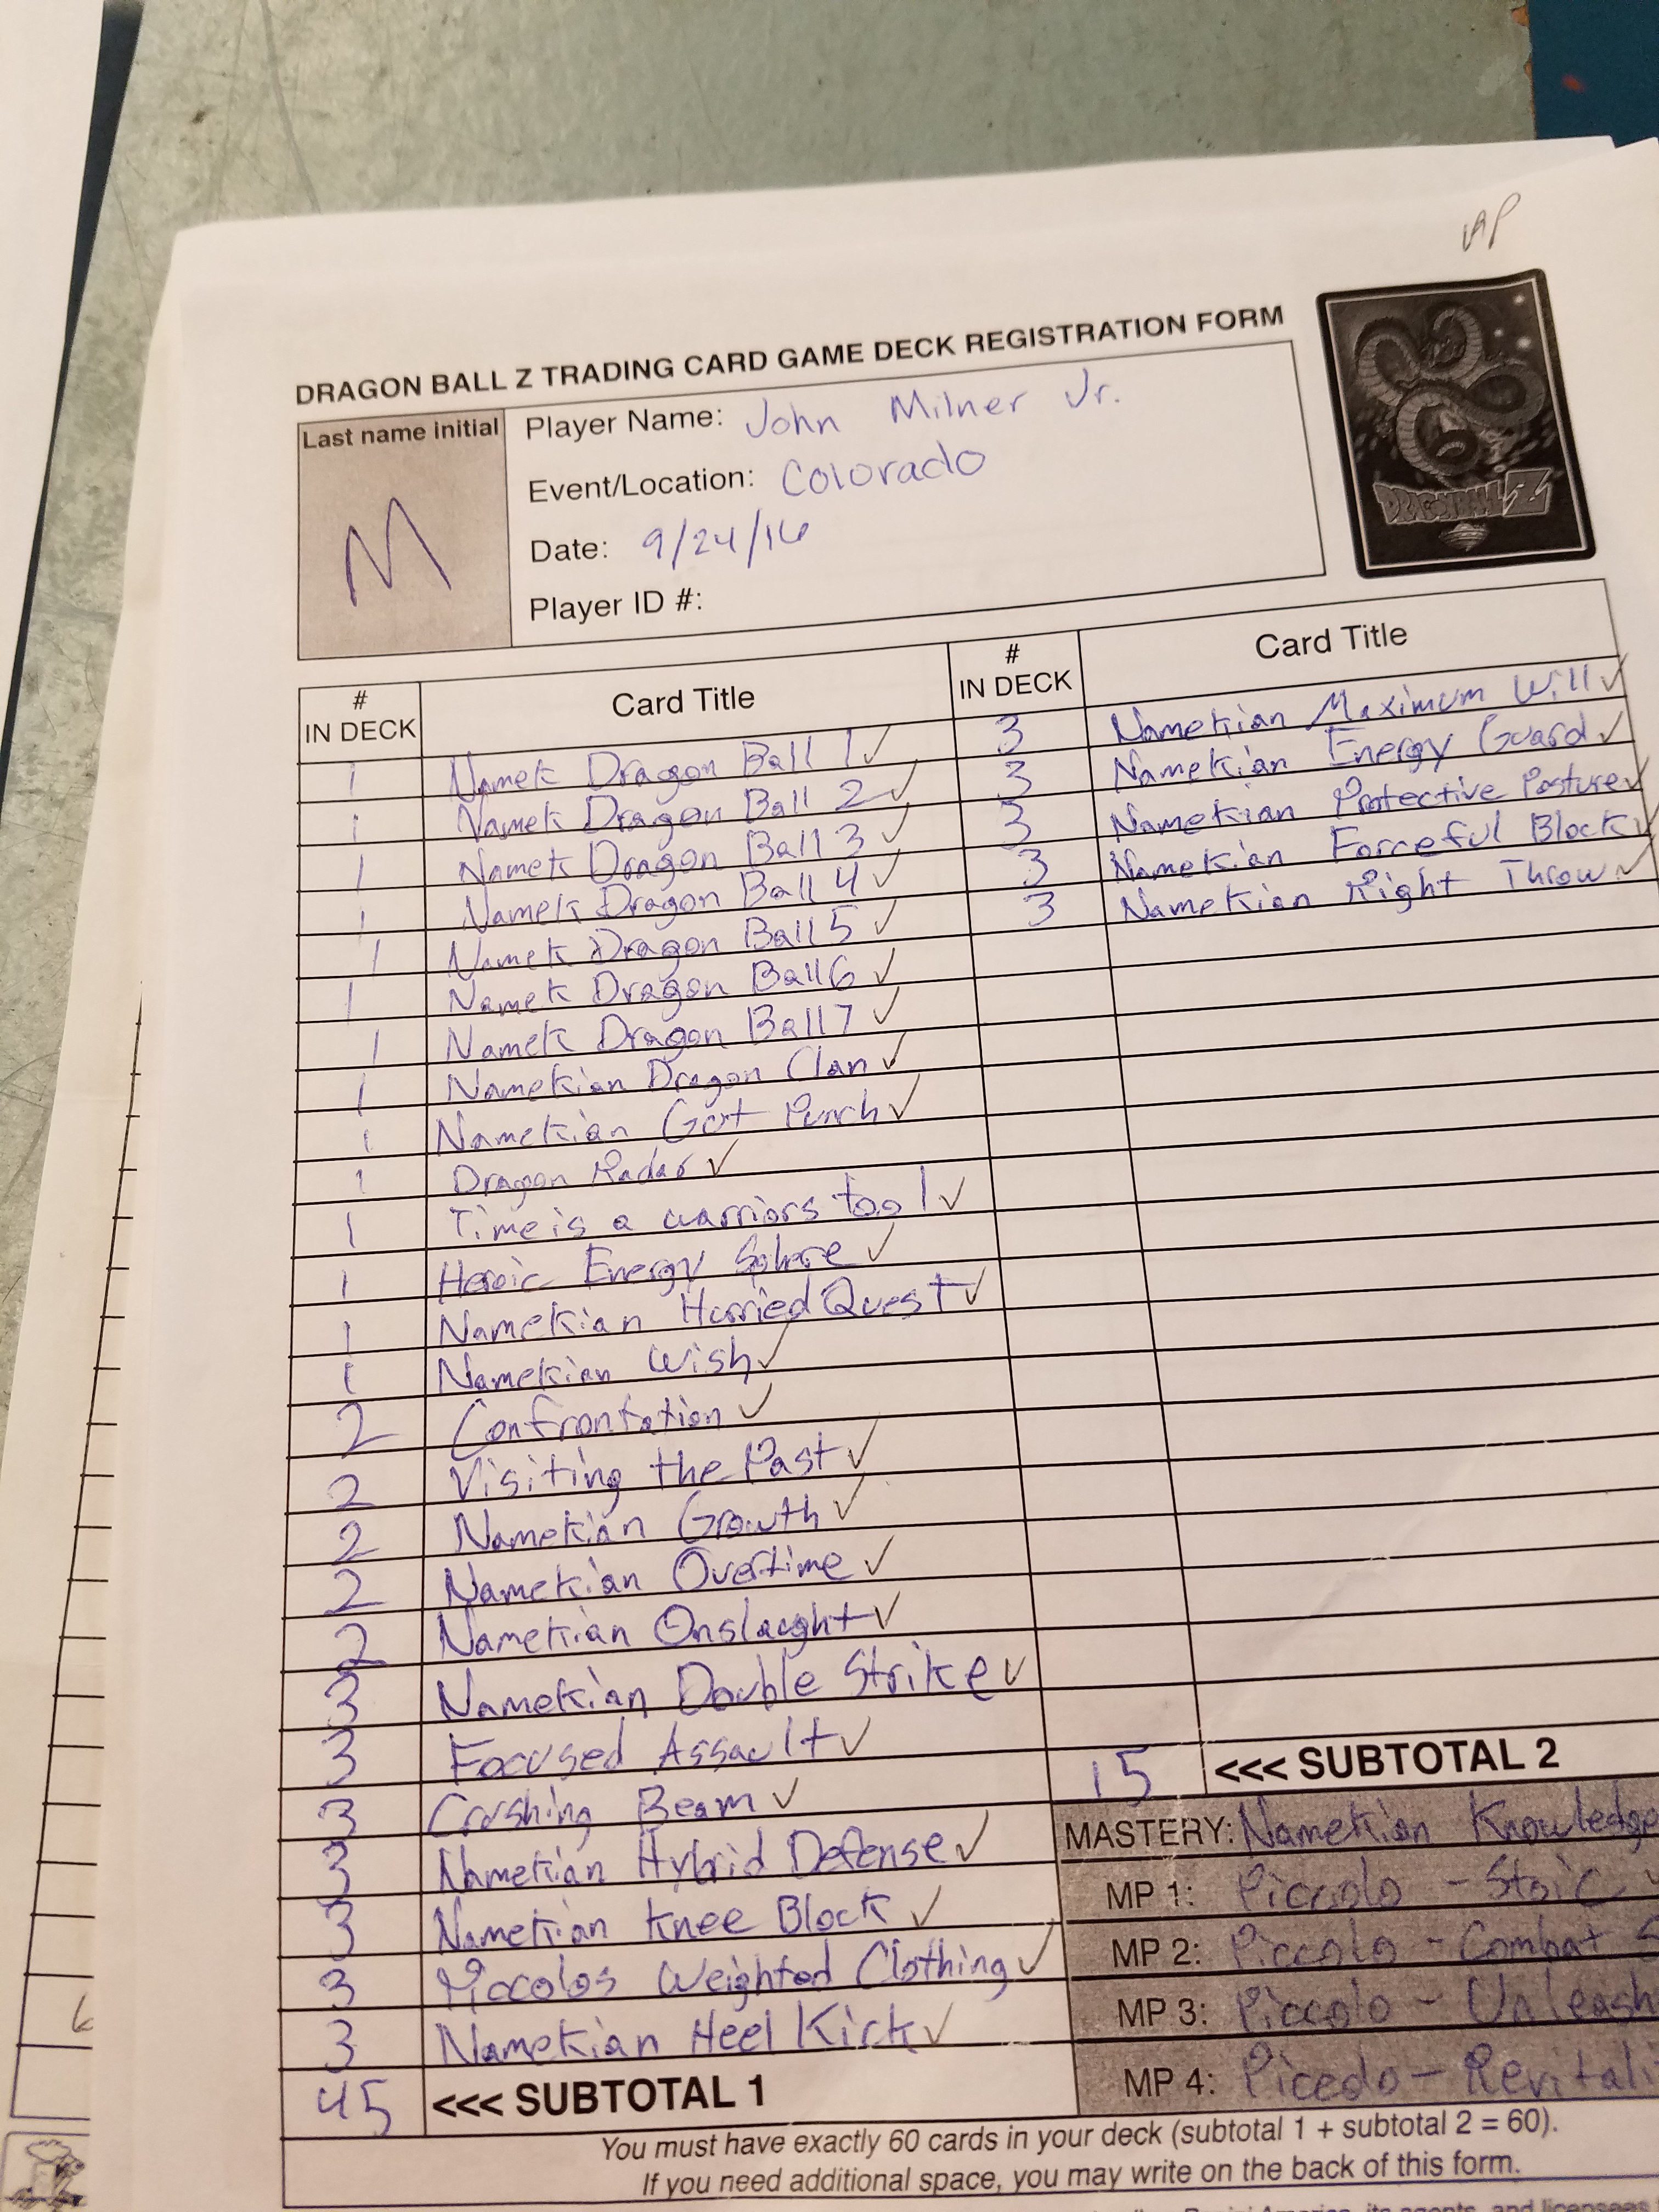 DRAGON BALL Z TRADING CARD GAME DECK REGISTRATION FORM
Last name initial
M
Player Name: John Milner Jr.
Event/Location: Colorado
Date: 9/24/16
Player ID #:
DRAGONBALL Z
# IN DECK Card Title
1 Namek Dragon Ball 1 ✓
1 Namek Dragon Ball 2 ✓
1 Namek Dragon Ball 3 ✓
1 Namek Dragon Ball 4 ✓
1 Namek Dragon Ball 5 ✓
1 Namek Dragon Ball 6 ✓
1 Namek Dragon Ball 7 ✓
1 Namekian Dragon Clan ✓
1 Namekian Gut Punch ✓
1 Dragon Radar ✓
1 Time is a warriors tool ✓
1 Heroic Energy Sphere ✓
1 Namekian Hurried Quest ✓
1 Namekian Wish ✓
2 Confrontation ✓
2 Visiting the Past ✓
2 Namekian Growth ✓
2 Namekian Overtime ✓
2 Namekian Onslaught ✓
3 Namekian Double Strike ✓
3 Focused Assault ✓
3 Crushing Beam ✓
3 Namekian Hybrid Defense ✓
3 Namekian Knee Block ✓
3 Piccolos Weighted Clothing ✓
3 Namekian Heel Kick ✓
45 <<< SUBTOTAL 1
# IN DECK Card Title
3 Namekian Maximum Will ✓
3 Namekian Energy Guard ✓
3 Namekian Protective Posture ✓
3 Namekian Forceful Block ✓
3 Namekian Right Throw ✓
15 <<< SUBTOTAL 2
MASTERY: Namekian Knowledge
MP 1: Piccolo - Stoic
MP 2: Piccolo - Combat S
MP 3: Piccolo - Unleash
MP 4: Piccolo - Revitali
You must have exactly 60 cards in your deck (subtotal 1 + subtotal 2 = 60).
If you need additional space, you may write on the back of this form.